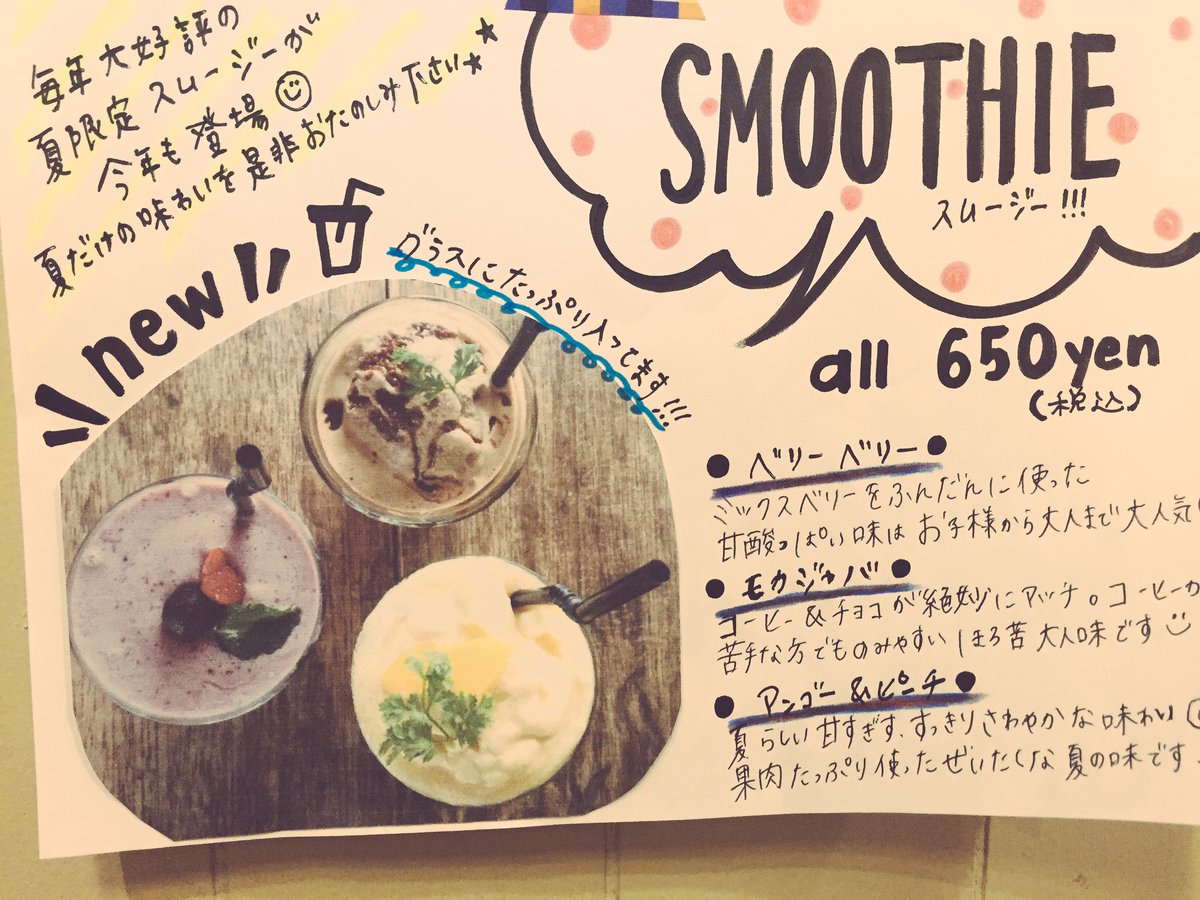 毎年大好評の
夏限定スムージーが
今年も登場
夏だけの味わいを是非おたのしみ下さい★★
SMOOTHIE
スムージー!!!
new
グラスにたっぷり入ってます!!!
all 650yen
(税込)
●ベリーベリー●
ミックスベリーをふんだんに使った
甘酸っぱい味はお子様から大人まで大人気!
●モカジャバ●
コーヒー&チョコが絶妙にマッチ。コーヒーが
苦手な方でものみやすいほろ苦大人味です
●アンゴー&ピーチ●
夏らしい甘すぎず、すっきりさわやかな味わい
果肉たっぷり使ったぜいたくな夏の味です